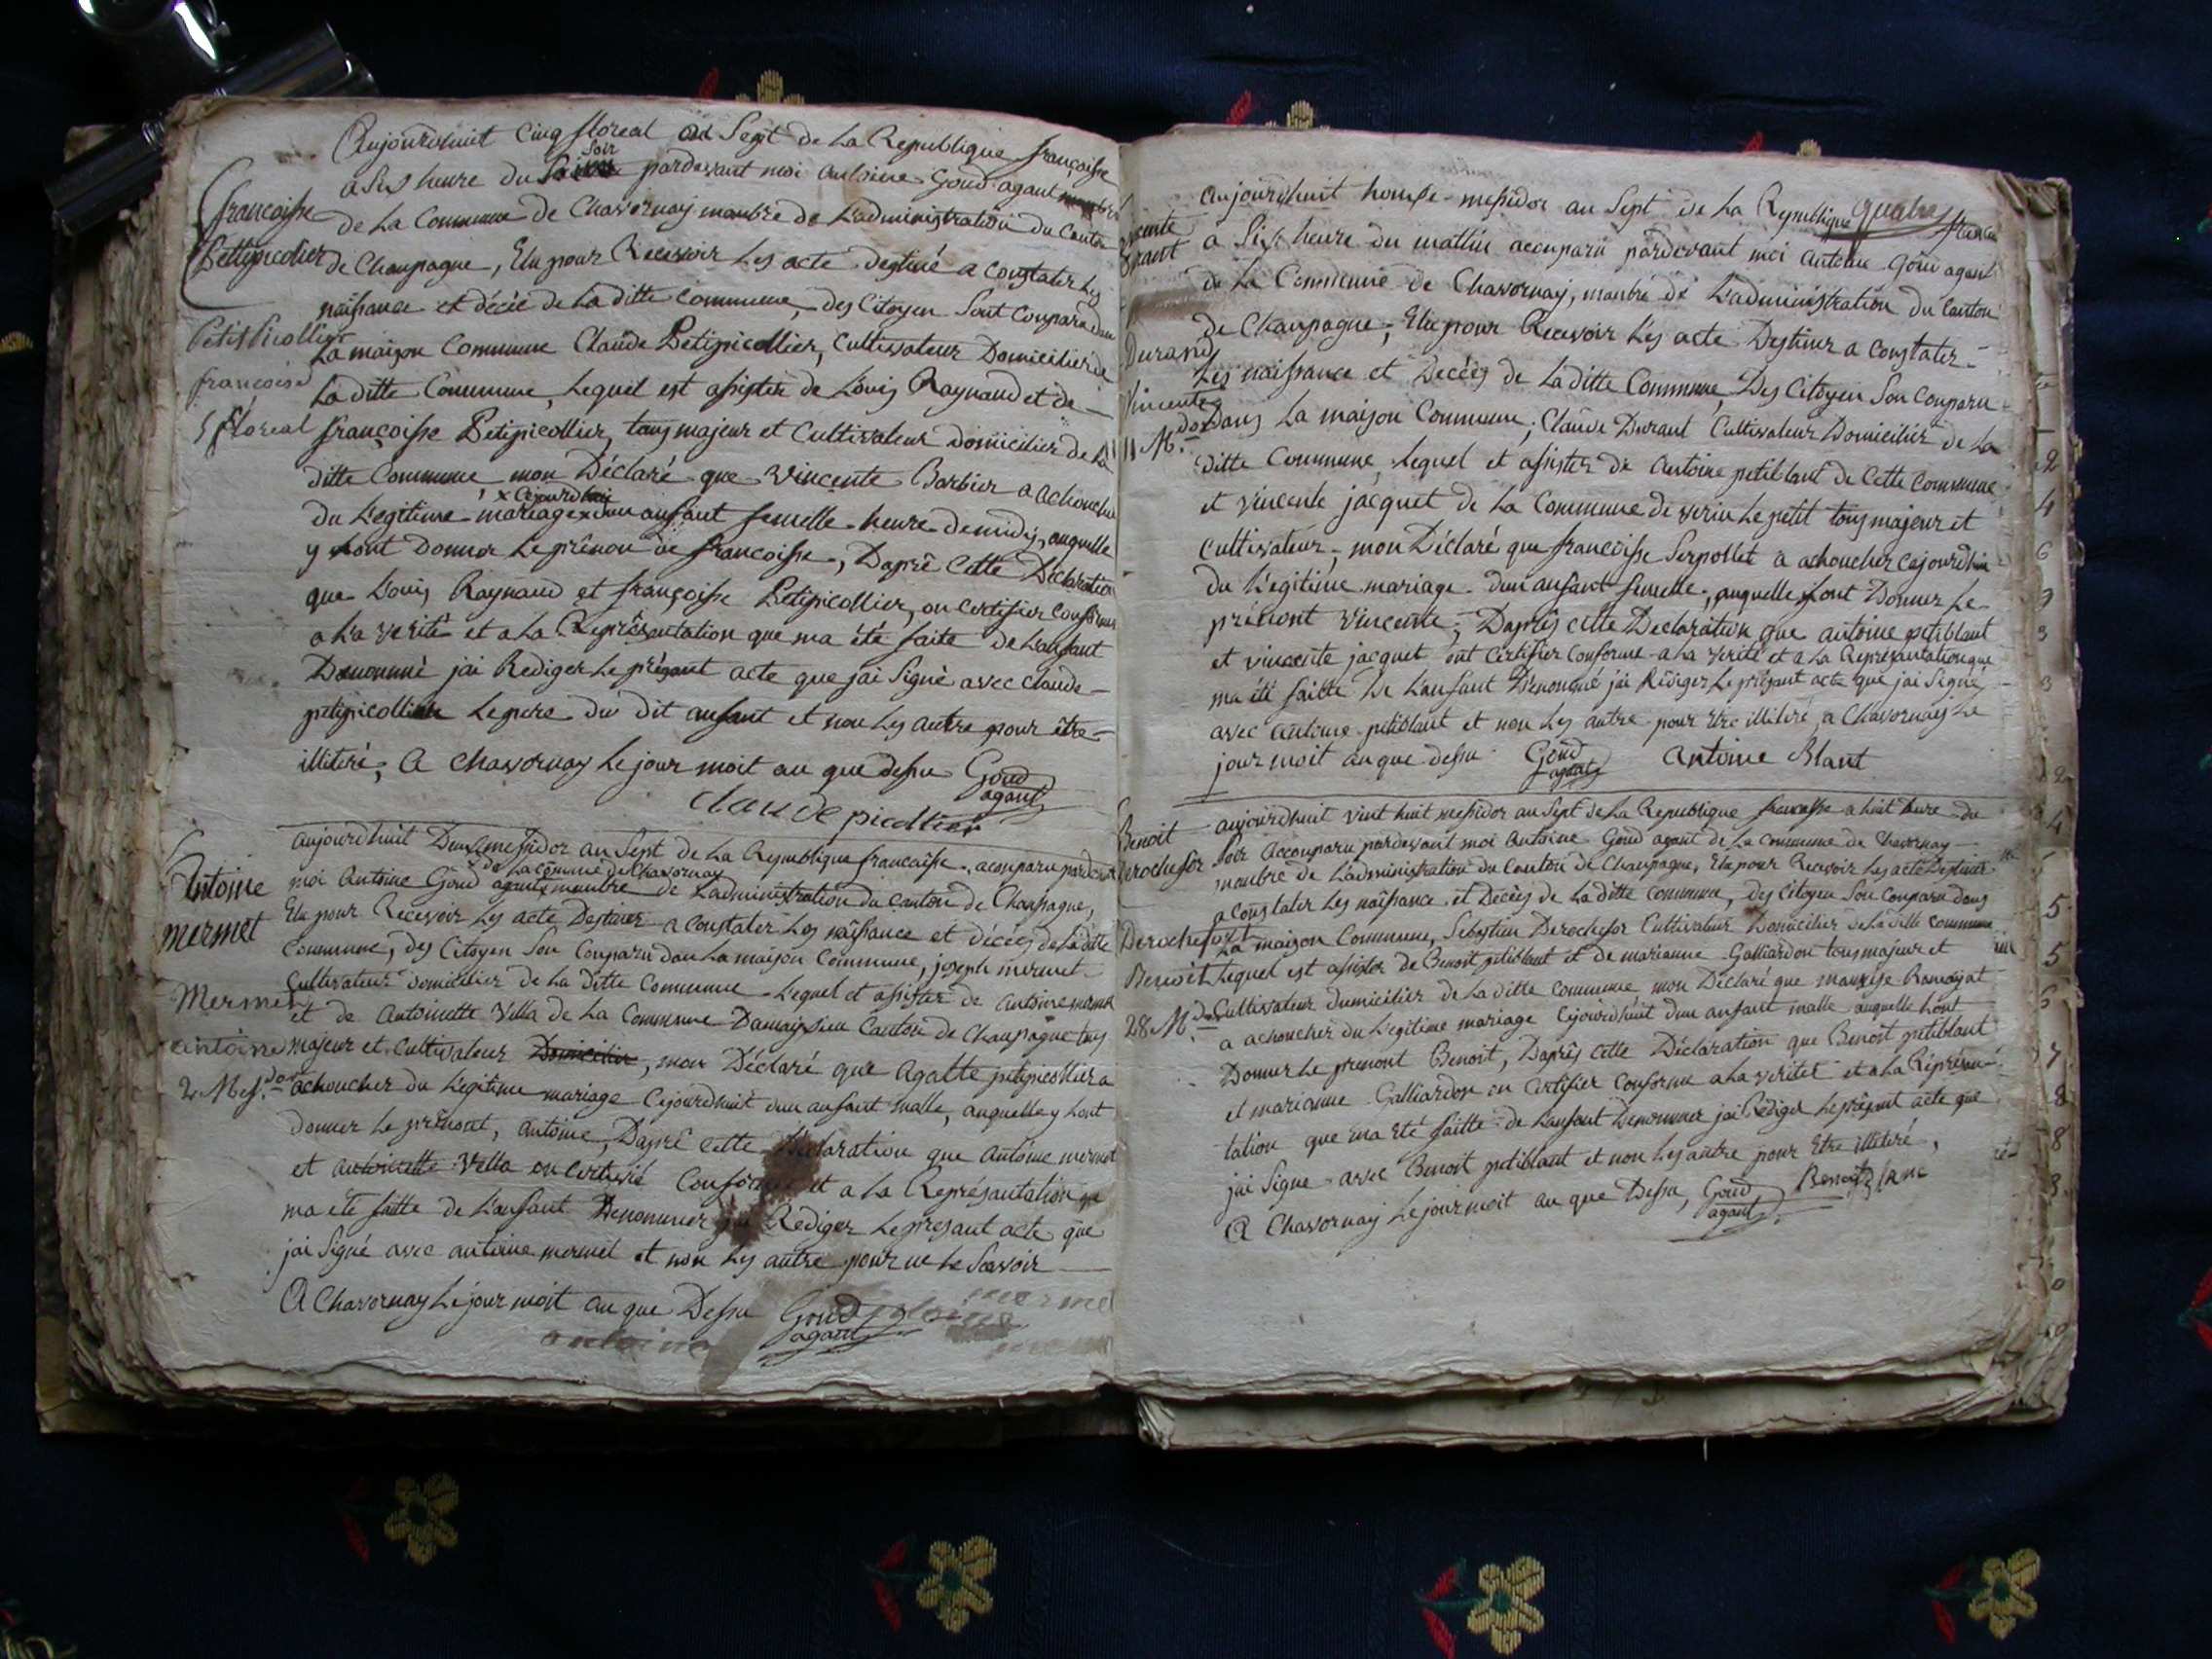 Aujourdhuit Cinq floreal an Sept de La Republique françoisse
a Six heure du soir pardevant moi antoine Goud agant
françoisse
Pettipicolier
de La Commune de Chavornay manbre de Ladministration du Canton
de Chanpagne, Elu pour Recevoir Les acte destiné a Constater Les
naissance et décéé de La ditte Commune, des Citoyen Sont Conparu dan
Petit Picollier
françoise
5 floreal
La maison Commune Claude Petipicollier, Cultivateur Domicilier de
La ditte Commune, Lequel est assister de Louis Raynaud et de
françoisse Petipicollier, tous majeur et Cultivateur domicilier de La
ditte Commune mon Déclaré que Vincente Barbier a achoucher
x Cejourdhuy
du Legitime mariage x dun anfant femelle heure de midy, auquelle
y lont Donner Le prénon de francoisse, Daprê Cette Déclaration
que Louis Raynaud et françoisse Petipicollier, on Certifier Conforme
a La verité et a La Reprèsantation que ma été faite de Lanfant
Dénommé jai Rediger Le présant acte que jai Signé avec Claude
petipicollier Le pere du dit anfant et non Les autre pour être
illiteré, A Chavornay Le jour moit an que dessu Goud
agant
claude picollier
Aujourdhuit Deux messidor an Sept de La Republique francaisse aconparu pardevant
de La Comune de Chavornay
Antoine
mermet
moi Antoine Goud agant manbre de Ladministration du Canton de Chanpagne,
Elu pour Recevoir Les acte Destiner a Constater Les naissance et décéés de La ditte
Commune, des Citoyen Son Conparu dan La maison Commune, joseph mermet
Mermet
antoine
2 Mess.dor
Cultivateur domicilier de La ditte Commune Lequel et assister de Antoine mermet
et de Antoinette Villa de La Commune Damaysieu Canton de Chanpagne tous
majeur et Cultivateur Domicilier, mon Déclaré que Agatte petipicollier a
achoucher du Legitime mariage Cejourdhuit dun anfant malle, auquelle y lont
donner Le prénont, antoine, Daprê Cette Déclaration que Antoine mermet
et antoinette Vella on Certifié Conforme et a La Représantation que
ma été faitte de Lanfant Dénommer jai Rediger Le présant acte que
jai Signé avec antoine mermet et non Les autre pour ne Le Savoir
A Chavornay Le jour moit an que Dessu Goud
agant
antoine
mermet
Aujourdhuit honse messidor an Sept de La Republique
quatre
Durant
a Six heure du mattin acconparu pardevant moi Antoine Goud agant
de La Commune de Chavornay, manbre de Ladministration du Canton
de Chanpagne, Elu pour Recevoir Les acte Destiner a Constater
Durand
Vincente
11 M.dor
Les naissance et Decéés de La ditte Commune, Des Citoyen Son Conparu
Dans La maison Commune, Claude Durant Cultivateur Domicilier de La
ditte Commune, Lequel et assister de Antoine petiblant de Cette Commune
et vincente jacquet de La Commune de virieu Le petit tous majeur et
Cultivateur, mon Déclaré que francoisse Serpollet a achoucher Cejourdhui
du Legitime mariage dun anfant femelle, auquelle y lont Donner Le
prénont Vincente, Daprês Cette Declaration que antoine petiblant
et vincente jacquet ont Certifier Conforme a La verité et a La Représantation que
ma été faitte de Lanfant Dénommé jai Rédiger Le présant acte que jai Signé
avec antoine petiblant et non Les autre pour être illiteré, a Chavornay Le
jour moit an que dessu Goud
agant
Antoine Blant
Benoit
Derochefor
aujourdhuit vint huit messidor an Sept de La Republique francaisse a huit heure du
Soir Acconparu pardevant moi Antoine Goud agant de La Commune de Chavornay
manbre de Ladministration du Canton de Chanpagne, Elu pour Recevoir Les acte Destiner
a Constater Les naissance et Décéés de La ditte Commune, des Citoyen Son Conparu dans
Derochefort
Benoit
28 M.dor
La maison Commune, Sebastien Derochefor Cultivateur Domicilier de La ditte Commune
Lequel est assister de Benoit petiblant et de marianne Galliardon tous majeur et
Cultivateur domicilier de La ditte Commune mon Déclaré que
a achoucher du Legitime mariage Cejourdhuit dun anfant malle auquelle lont
Donner Le prenont Benoit, Daprês Cette Déclaration que Benoit petiblant
et marianne Galliardon on Certifier Conforme a La veritet et a La Représen
tation que ma été faitte de Lanfant Dénommer jai Rédiger Le présant acte que
jai Signe avec Benoit petiblant et non Les autre pour Etre illiteré,
A Chavornay Le jour moit an que Dessu, Goud
agant
Benoit blanc